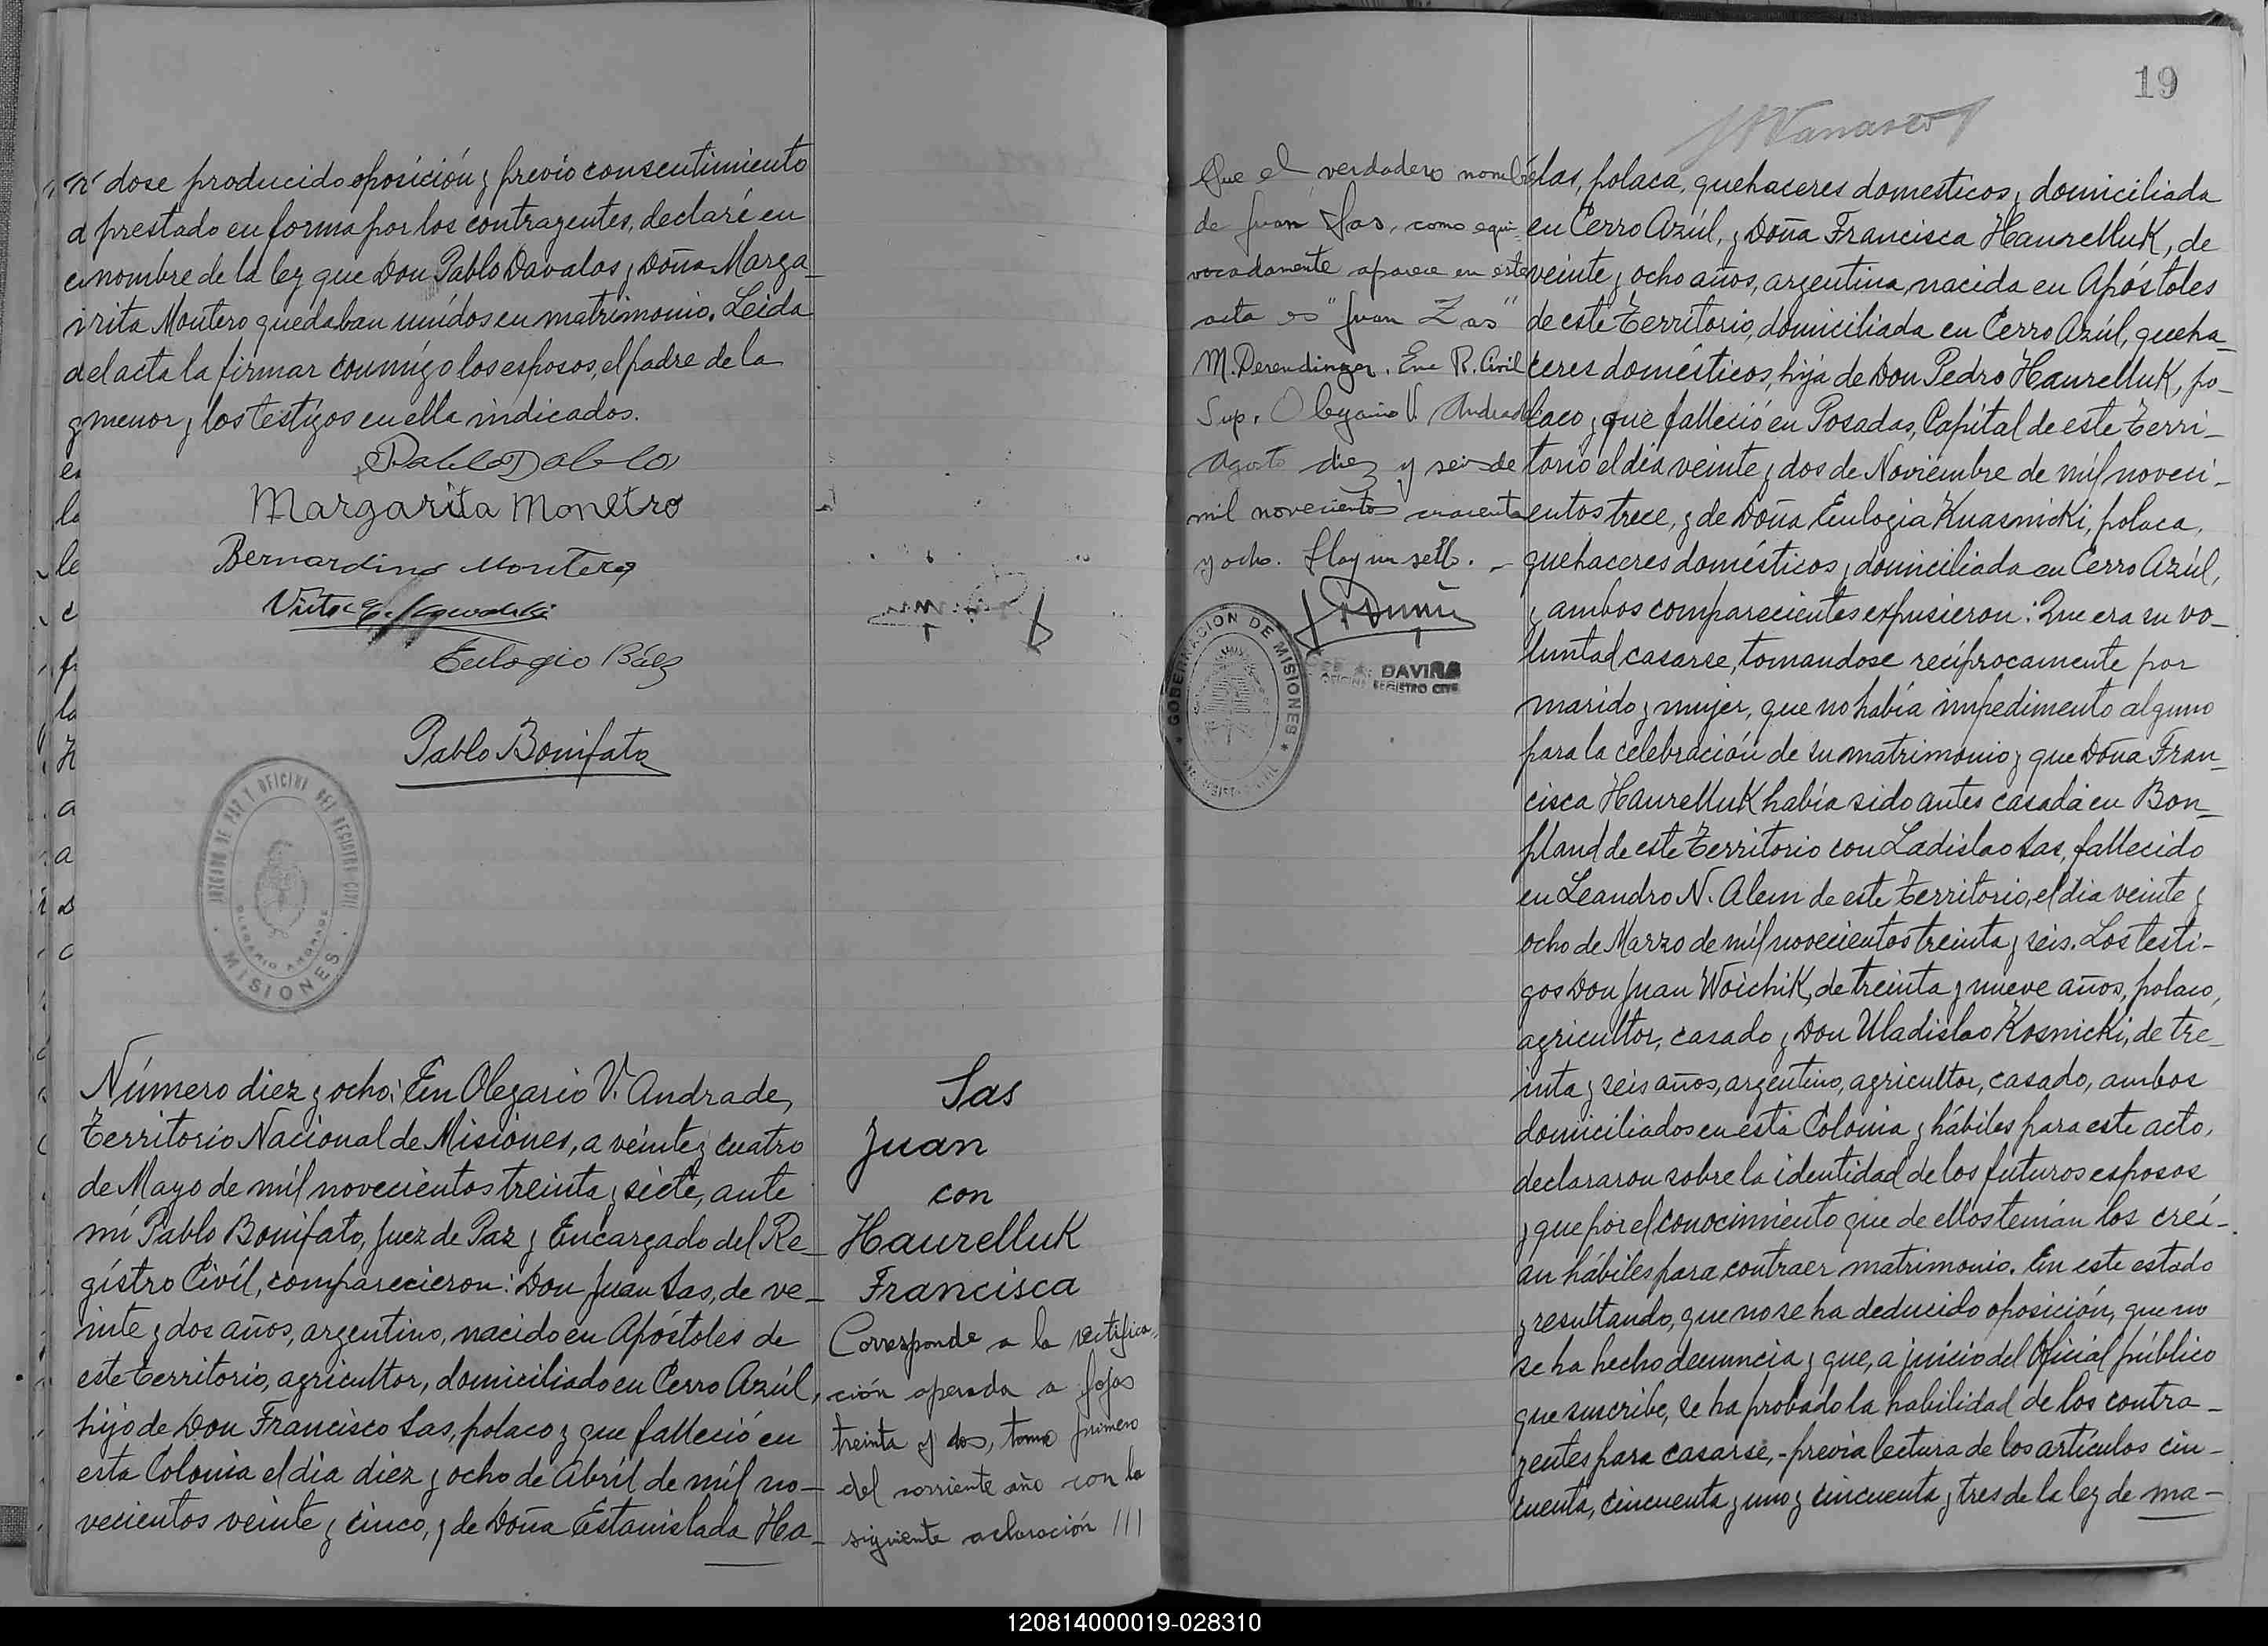 dose producido oposición y previo consentimiento
prestado en forma por los contrayentes, declaré en
nombre de la ley que Don Pablo Davalos y Doña Marga-
rita Montero quedaban unídos en matrimonio. Leida
el acta la firmar conmígo los esposos, el padre de la
menor y los testígos en ella indicados.
Margarita Monetro
Bernardino Montero
Eulogio Báez
Pablo Bonifato
JUZGADO DE PAZ Y OFICINA DEL REGISTRO CIVIL
MISIONES
Número diez y ocho: En Olegario V. Andrade,
Territorio Nacional de Misiones, a veinte y cuatro
de Mayo de míl novecientos treinta y siete, ante
mí Pablo Bonifato, Juez de Paz y Encargado del Re-
gístro Civíl, comparecieron: Don Juan Sas, de ve-
inte y dos años, argentino, nacido en Apóstoles de
este territorio, agricultor, domiciliado en Cerro Azúl,
hijo de Don Francisco Sas, polaco y que falleció en
esta Colonia el dia diez y ocho de Abríl de míl no-
vecientos veinte y cinco, y de Doña Estanislada Ha-
Sas
Juan
con
Haurelluk
Francisca
Corresponde a la rectifica-
ción operada a fojas
treinta y dos, tomo primero
del corriente año con la
siguiente aclaración ///
19
Que el verdadero nombre
de Juan Sas, como equi-
vocadamente aparece en este
acta es "Juan Zas"
M. Derendinger. Enc R. Civil
Sup. Olegario V. Andrade
Agosto diez y seis de
mil novecientos cuarenta
y ocho. Hay un sello. -
GOBERNACION DE MISIONES
DAVIÑA
OFICINA REGISTRO CIVIL
las, polaca, quehaceres domesticos y domiciliada
en Cerro Azúl, y Doña Francisca Haurelluk, de
veinte y ocho años, argentina, nacida en Apóstoles
de este Territorio, domiciliada en Cerro Azúl, queha-
ceres domésticos, hija de Don Pedro Haurelluk, po-
laco y que falleció en Posadas, Capítal de este Terri-
torio el día veinte y dos de Noviembre de míl noveci-
entos trece, y de Doña Eulogia Kuasnicki, polaca,
quehaceres domésticos y domiciliada en Cerro Azúl,
y ambos comparecientes expusieron: Que era su vo-
luntad casarse, tomandose recíprocamente por
marido y mujer, que no había impedimento alguno
para la celebración de su matrimonio y que Doña Fran-
cisca Haurelluk había sido antes casada en Bon-
pland de este Territorio con Ladislao Sas, fallecido
en Leandro N. Alem de este Territorio, el dia veinte y
ocho de Marzo de míl novecientos treinta y seis. Los testi-
gos Don Juan Woichik, de treinta y nueve años, polaco,
agricultor, casado y Don Uladislao Kosnicki, de tre-
inta y seis años, argentino, agricultor, casado, ambos
domiciliados en esta Colonia y hábiles para este acto,
declararon sobre la identidad de los futuros esposos
y que por el conocimiento que de ellos tenían los creí-
an hábiles para contraer matrimonio. En este estado
y resultando, que no se ha deducido oposición, que no
se ha hecho denuncia y que, a juicio del Oficial público
que suscribe, se ha probado la habilidad de los contra-
yentes para casarse, - previa lectura de los artículos cin-
cuenta, cincuenta y uno y cincuenta y tres de la ley de ma-
120814000019-028310